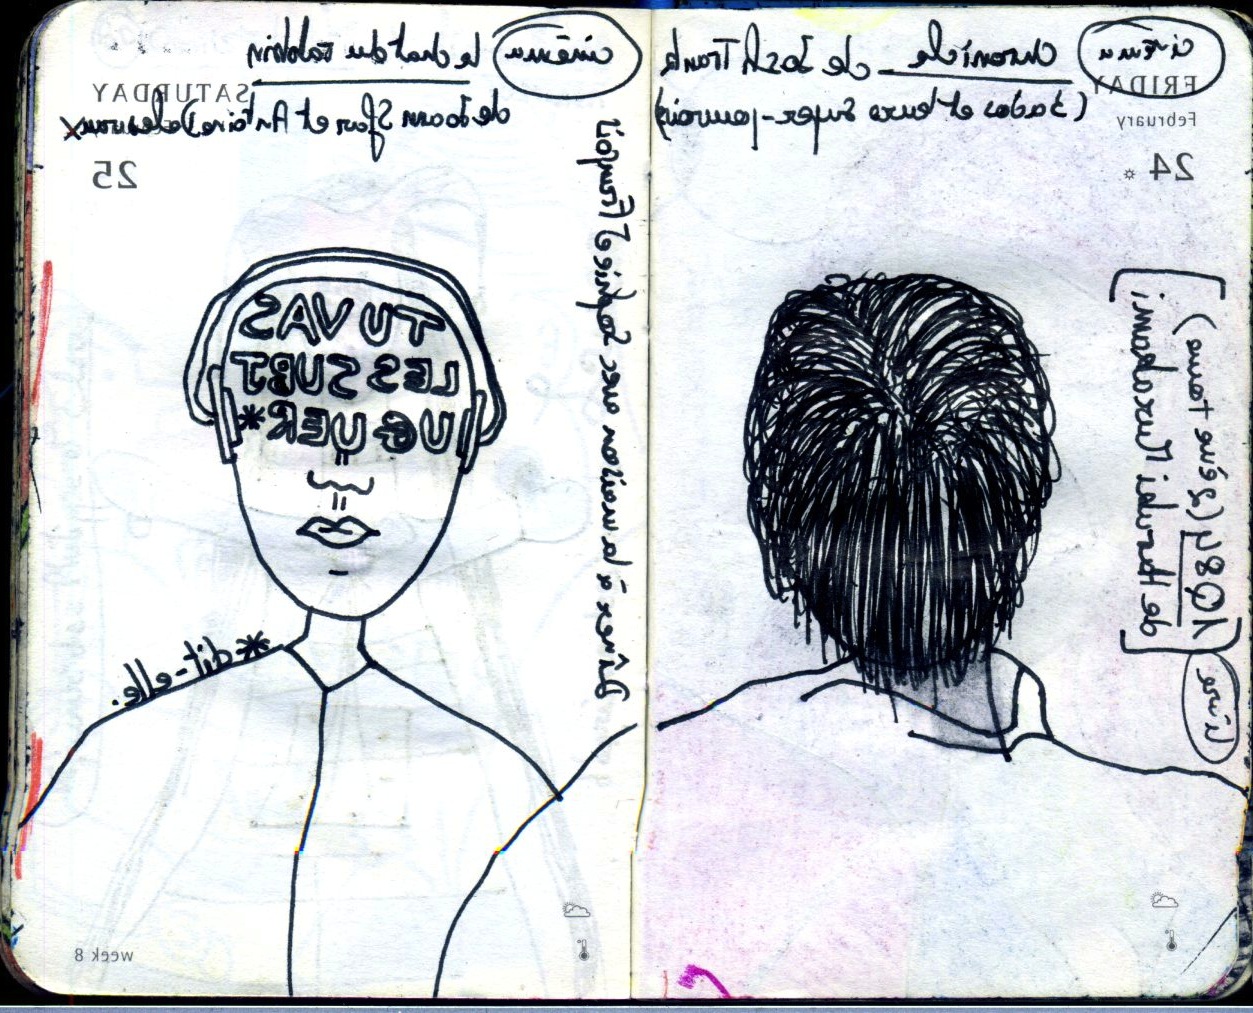 cinéma Chronicle de Josh Trank
FRIDAY
(3 ados et leurs super-pouvoirs)
February
24
livre
1Q84 (2ème tome)
de Haruki Murakami.
cinéma le chat du rabbin
SATURDAY
de Joann Sfar et Antoine Delesvaux
25
Dîner à la maison avec Sophie & François
TU VAS
LES SUBJ
UGUER*
*dit-elle.
week 8